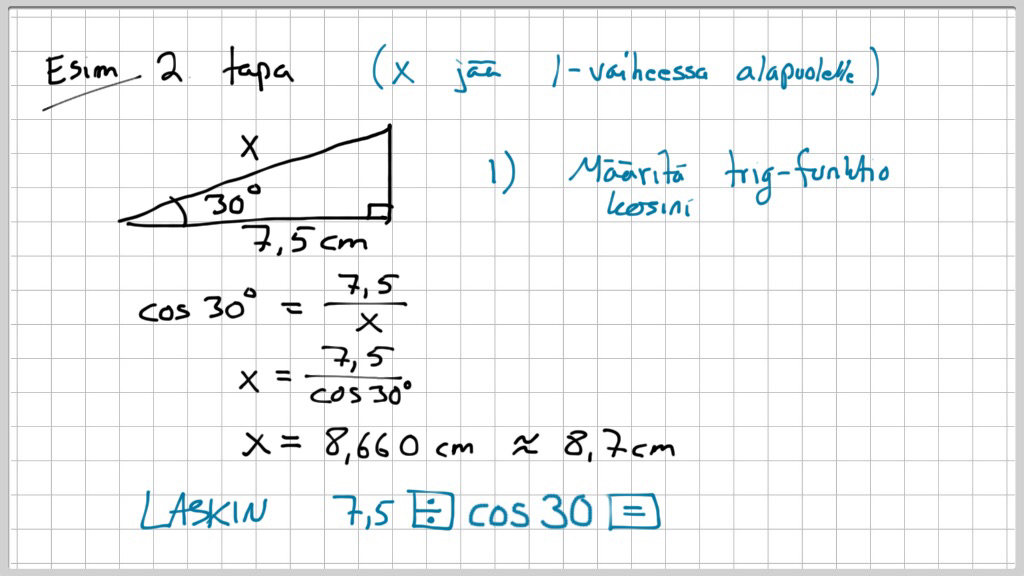 Esim 2 tapa (x jää 1-vaiheessa alapuolelle)
x
30°
7,5 cm
1) Määritä trig-funktio
kosini
cos 30° = 7,5 / x
x = 7,5 / cos 30°
x = 8,660 cm ≈ 8,7 cm
LASKIN 7,5 ÷ cos 30 =